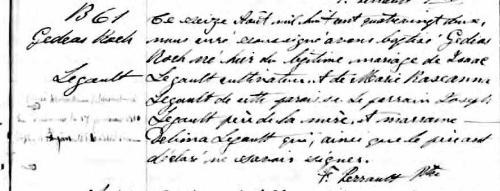 B61
Gedeas Roch
Legault
Ce seize Août mil huit cent quatrevingt deux,
nous curé soussigné avons baptisé Gedeas
Roch né hier du légitime mariage de Isaac
Legault cultivateur et de Marie Roseanna
Legault de cette paroisse. Le parrain Joseph
Legault père de la mère, et marraine
Delima Legault qui, ainsi que le père ont
déclaré ne savoir signer.
F. Perrault Ptre